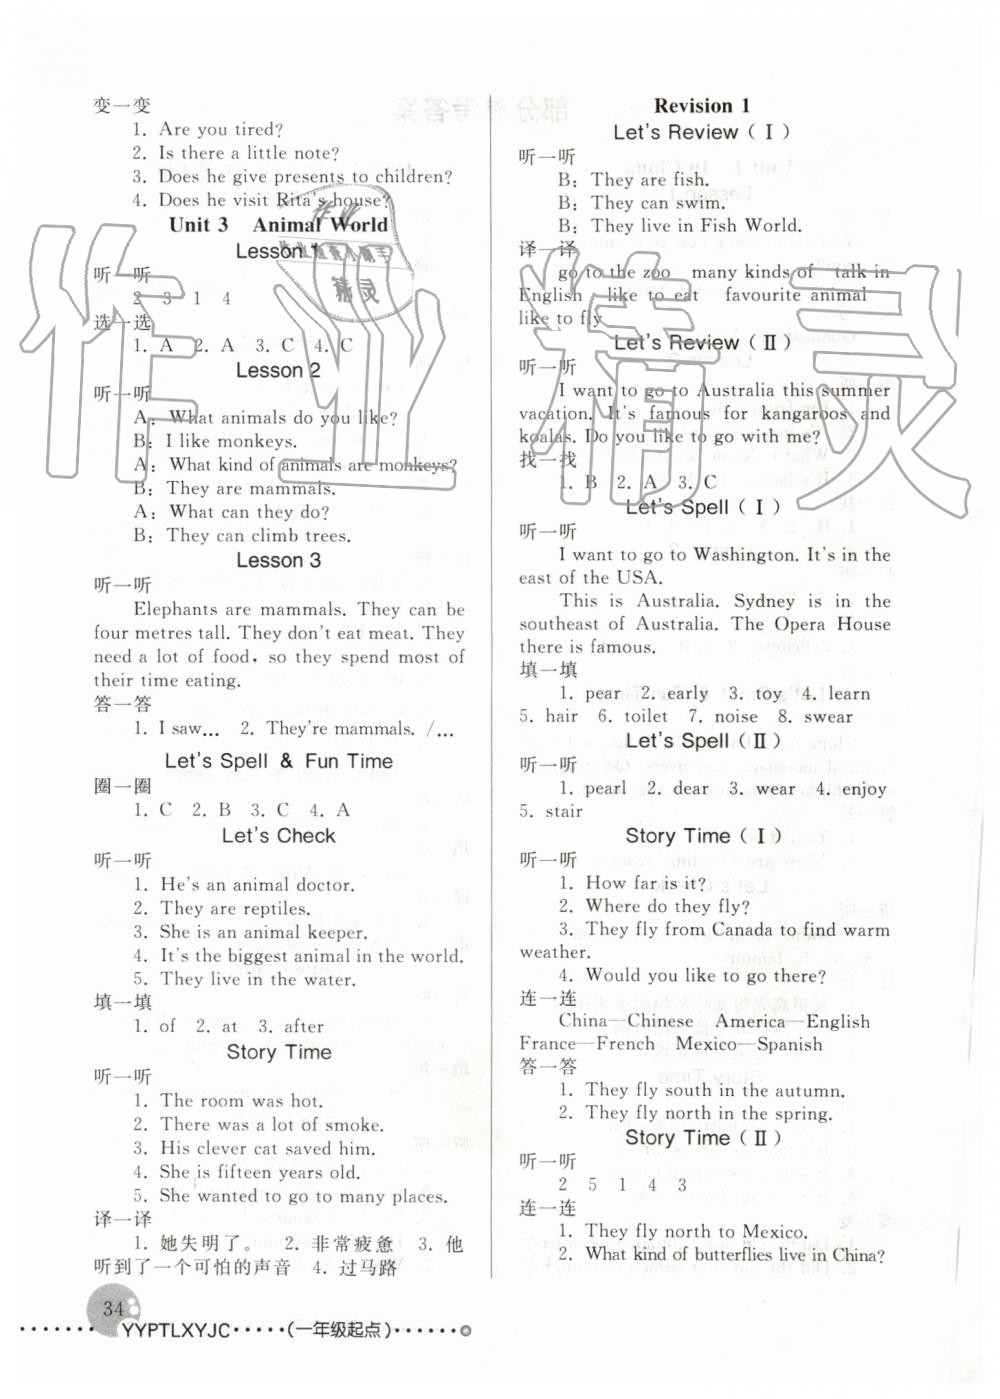 变一变
1. Are you tired?
2. Is there a little note?
3. Does he give presents to children?
4. Does he visit Rita's house?
Unit 3 Animal World
Lesson 1
听一听
2 3 1 4
选一选
1. A 2. A 3. C 4. C
Lesson 2
听一听
A: What animals do you like?
B: I like monkeys.
A: What kind of animals are monkeys?
B: They are mammals.
A: What can they do?
B: They can climb trees.
Lesson 3
听一听
Elephants are mammals. They can be
four metres tall. They don't eat meat. They
need a lot of food, so they spend most of
their time eating.
答一答
1. I saw... 2. They're mammals. /...
Let's Spell & Fun Time
圈一圈
1. C 2. B 3. C 4. A
Let's Check
听一听
1. He's an animal doctor.
2. They are reptiles.
3. She is an animal keeper.
4. It's the biggest animal in the world.
5. They live in the water.
填一填
1. of 2. at 3. after
Story Time
听一听
1. The room was hot.
2. There was a lot of smoke.
3. His clever cat saved him.
4. She is fifteen years old.
5. She wanted to go to many places.
译一译
1. 她失明了。 2. 非常疲惫 3. 他
听到了一个可怕的声音 4. 过马路
Revision 1
Let's Review (Ⅰ)
听一听
B: They are fish.
B: They can swim.
B: They live in Fish World.
译一译
go to the zoo many kinds of talk in
English like to eat favourite animal
like to fly
Let's Review (Ⅱ)
听一听
I want to go to Australia this summer
vacation. It's famous for kangaroos and
koalas. Do you like to go with me?
找一找
1. B 2. A 3. C
Let's Spell (Ⅰ)
听一听
I want to go to Washington. It's in the
east of the USA.
This is Australia. Sydney is in the
southeast of Australia. The Opera House
there is famous.
填一填
1. pear 2. early 3. toy 4. learn
5. hair 6. toilet 7. noise 8. swear
Let's Spell (Ⅱ)
听一听
1. pearl 2. dear 3. wear 4. enjoy
5. stair
Story Time (Ⅰ)
听一听
1. How far is it?
2. Where do they fly?
3. They fly from Canada to find warm
weather.
4. Would you like to go there?
连一连
China—Chinese America—English
France—French Mexico—Spanish
答一答
1. They fly south in the autumn.
2. They fly north in the spring.
Story Time (Ⅱ)
听一听
2 5 1 4 3
连一连
1. They fly north to Mexico.
2. What kind of butterflies live in China?
34
YYPTLXYJC·····(一年级起点)
作业精灵